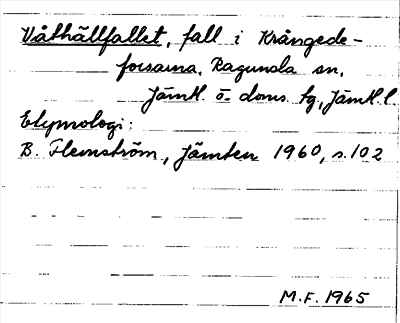 Våthällfallet, fall i Krångede-
forsarna, Ragunda sn,
Jämtl. ö. doms. tg, Jämtl. l.
Etymologi:
B. Flemström, Jämten 1960, s. 102
M.F. 1965